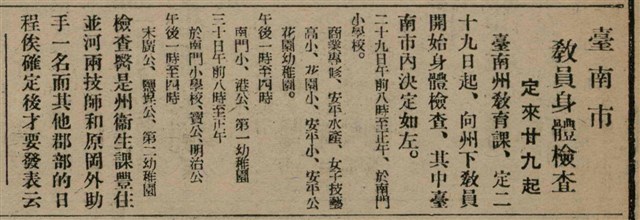 臺南市
敎員身體檢查
定來廿九起
臺南州敎育課、定二
十九日起、向州下敎員
開始身體檢查、其中臺
南市內決定如左。
二十九日午前八時至正午、於南門
小學校。
商業專修、安平水產、女子技藝
高小、花園小、安平小、安平公
花園幼稚園。
午後一時至四時
南門小、港公、第一幼稚園
三十日午前八時至正午
於南門小學校、寶公、明治公
午後一時至四時
末廣公、鹽埕公、第二幼稚園
檢查醫是州衞生課豐住
並河兩技師和原岡外助
手一名而其他郡部的日
程俟確定後才要發表云